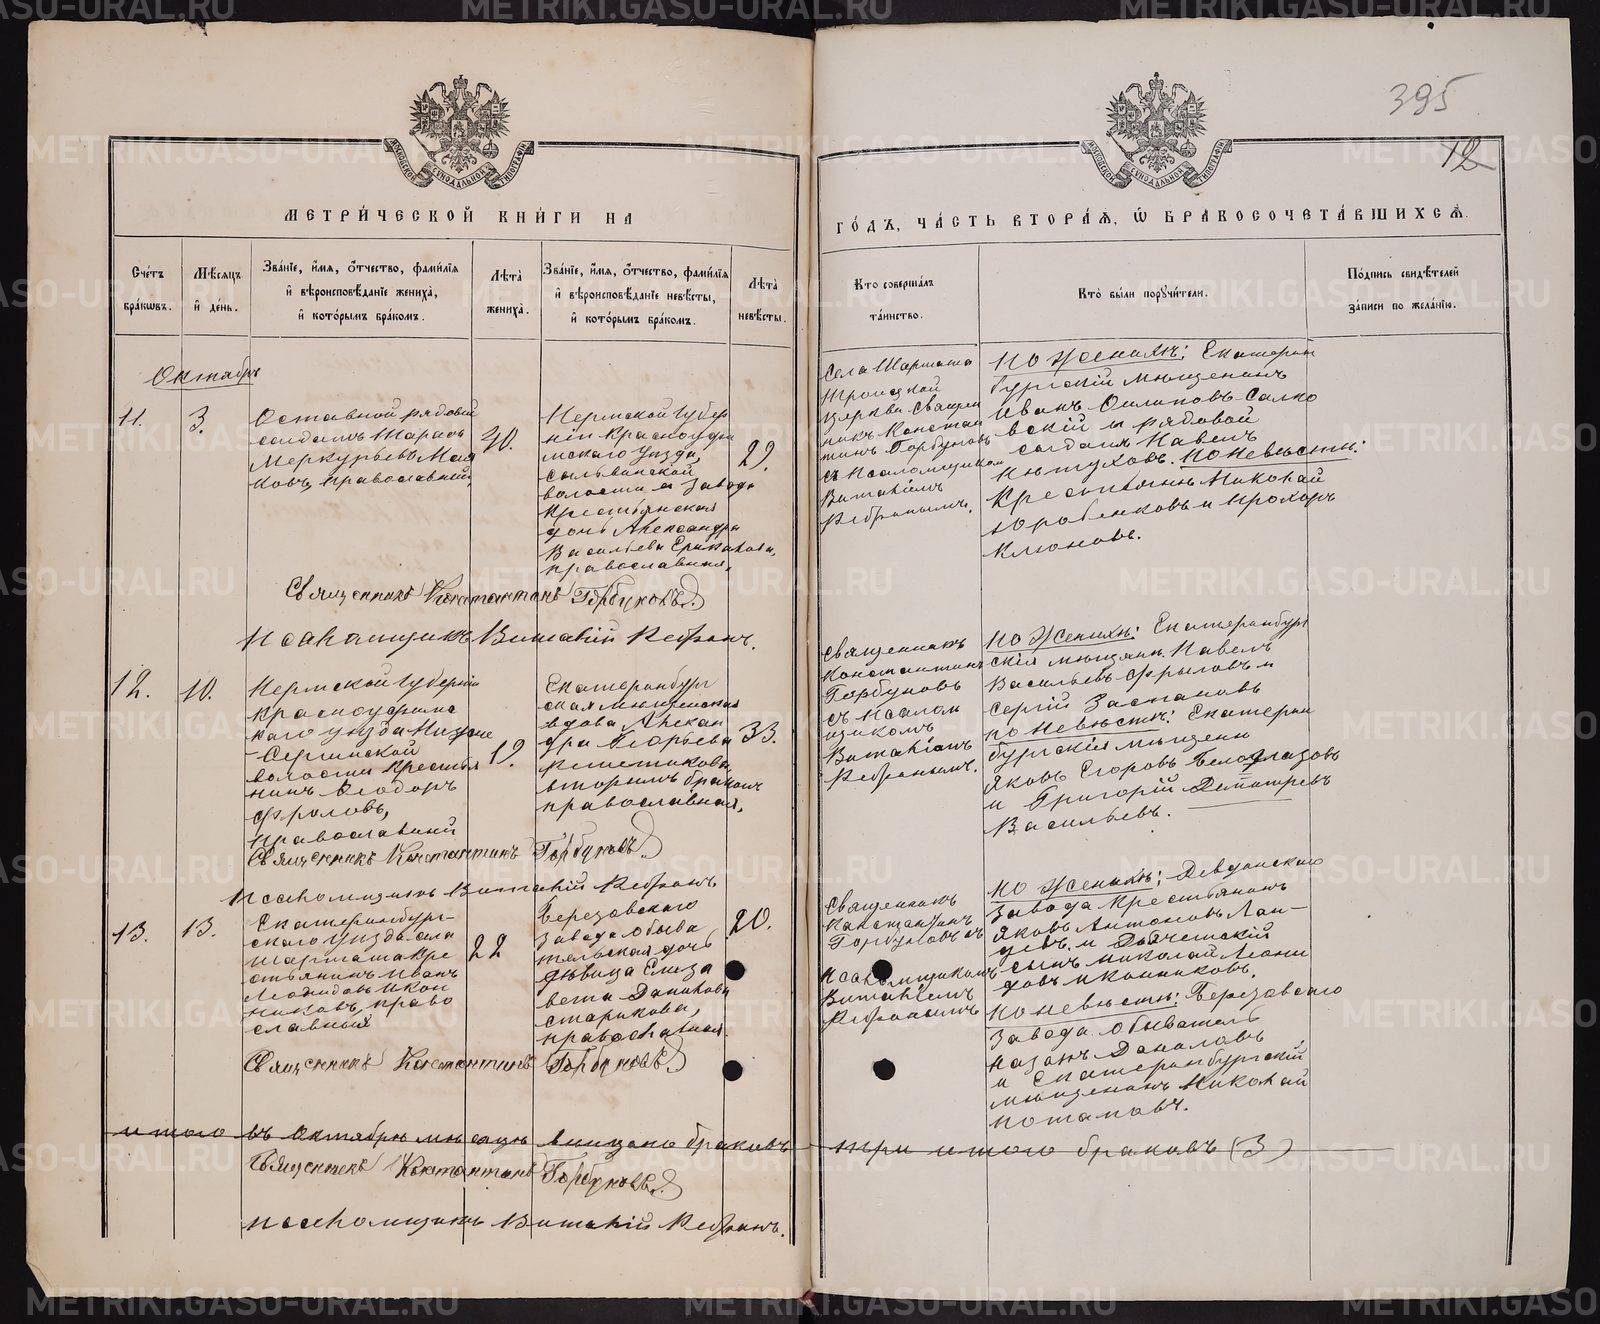 395
12
МЕТРИ́ЧЕСКОЙ КНИ́ГИ НА
ГО́ДЪ, ЧА́СТЬ ВТОРА́Я, Ѡ҆ БРАКОСОЧЕТА́ВШИХСЯ.
Счетъ бра́кѡвъ.
Мѣсяцъ и҆ де́нь.
Зва́нїе, и҆́мя, ѻ҆́тчество, фами́лїя и҆ вѣроисповѣ́данїе жениха̀, и҆ кото́рымъ бра́комъ.
Лѣта̀ жениха̀.
Зва́нїе, и҆́мя, ѻ҆́тчество, фами́лїя и҆ вѣроисповѣ́данїе невѣ́сты, и҆ кото́рымъ бра́комъ.
Лѣта̀ невѣ́сты.
Кто соверша́лъ та́инство.
Кто̀ бы́ли порꙋчи́тели.
По́дпись свидѣ́телей за́писи по жела́нїю.
Октябрь
11.
3.
Отставной рядовой
солдатъ Тарасъ
Меркурьевъ
православный,
30.
Пермской Губер
ніи Красноуфи
мскаго уѣзда,
сылвинской
волости и завода
Крестьянская
дочь Александра
Васильева
православная,
29.
Села Шарташа
Троицкой
церкви Священ
никъ Констан
тинъ Горбуновъ
съ Псаломщикомъ
Виталіемъ
По Женихѣ: Екатерин
бургскій мѣщанинъ
Иванъ Осиповъ
и рядовой
солдатъ Павелъ
Пѣтуховъ. По Невѣстѣ:
Крестьяне Николай
и Прохоръ
Священникъ Константинъ Горбуновъ.
Псаломщикъ Виталій
12.
10.
Пермской Губерніи
Красноуфимс
каго уѣзда Нижне
-Сергинской
волости Крестья
нинъ Ѳеодоръ
Фроловъ,
православный
19.
Екатеринбург
ская мѣщанская
вдова Алексан
дра Георгіева
вторымъ бракомъ
православная,
33.
Священникъ
Константинъ
Горбуновъ
съ Псалом
щикомъ
Виталіемъ
По Женихѣ: Екатеринбург
скія мѣщане Павелъ
Васильевъ и
Сергій
по Невѣстѣ: Екатерин
бургскія мѣщане
Яковъ Егоровъ Бело глазовъ
и Григорій Димитріевъ
Васильевъ.
Священникъ Константинъ Горбуновъ
Псаломщикъ Виталій
13.
13.
Екатеринбург-
скаго уѣзда села
Шарташа Кре
стьянинъ Иванъ
Леонидовъ Икон
никовъ, право
славный
22
Березовскаго
Завода обыва
тельская дочь
дѣвица Елиза
вета Данилова
Старикова,
православная.
20.
Священникъ
Константинъ
Горбуновъ съ
Псаломщикомъ
Виталіемъ
По Женихѣ:
Завода Крестьянинъ
Яковъ Антоновъ Лап-
сынъ Николай Леони
довъ Иконниковъ.
По Невѣстѣ: Березовскаго
Завода обыватель
Даниловъ
и Екатеринбургскій
мѣщанинъ Николай
Потаповъ.
Священникъ Константинъ Горбуновъ
итого въ Октябрѣ мѣсяцѣ вѣнчано браковъ три итого браковъ (3)
Священникъ Константинъ Горбуновъ.
Псаломщикъ Виталій